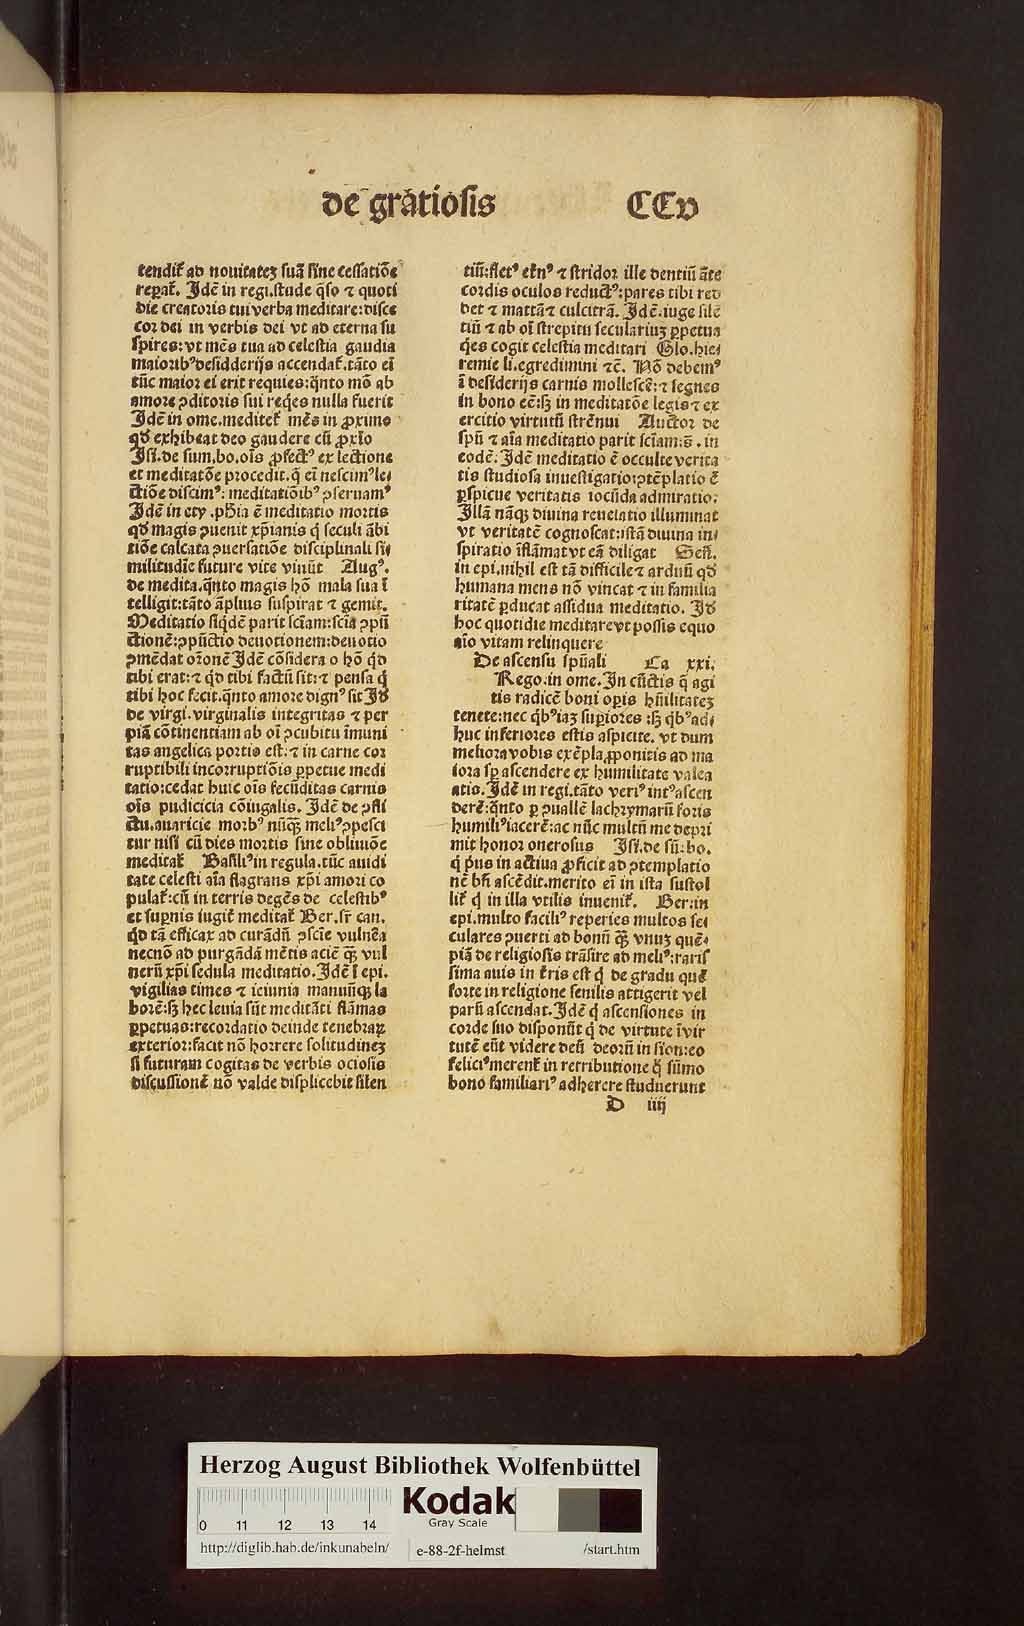 de grãtiosis CCv
tendit̃ ad nouitatez suã sine cessatiõe
repat̃. Jdẽ in regi.stude q̃so ⁊ quoti
die creatoris tui verba meditare:disce
cor dei in verbis dei vt ad eterna su
spires:vt mẽs tua ad celestia gaudia
maiorib⁹ desidderijs accendat̃.tãto eĩ
tũc maior ei erit requies:q̃nto mõ ab
amore ꝯditoris sui req̃es nulla fuerit
Jdẽ in ome.meditet̃ mẽs in ꝓximo
qď exhibeat deo gaudere cũ ꝓxĩo
Jsi.de sum.bo.oĩs ꝓfect⁹ ex lectione
et meditatõe procedit.q̃ eĩ nescim⁹ le⸗
ctiõe discim⁹: meditatiõib⁹ ꝯseruam⁹
Jdẽ in ety.phĩa ẽ meditatio mortis
qď magis ꝯuenit xp̃ianis q̃ seculi ãbi
tiõe calcata ꝯuersatiõe disciplinali si⸗
militudĩe future vite viuũt Aug⁹.
de medita.q̃nto magis hõ mala sua ĩ
telligit:tãto ãplius suspirat ⁊ gemit.
Meditatio siq̃dẽ parit sciam:sciã ꝯpũ
ctionẽ:ꝯpũctio deuotionem:deuotio
ꝯmẽdat or̃onẽ Jdẽ cõsidera o hõ q̃d
tibi erat:⁊ q̃d tibi factũ sit:⁊ pensa q̃
tibi hoc fecit.q̃nto amore dign⁹ sit Jď
de virgi.virginalis integritas ⁊ per
piã cõtinentiam ab oĩ ꝯcubitu ĩmuni
tas angelica portio est:⁊ in carne cor
ruptibili incorruptiõis ꝑpetue medi
tatio:cedat huic oĩs fecũditas carnis
oĩs pudicicia cõiugalis. Jdẽ de ꝯfli
ctu.auaricie morb⁹ nũq̃ȝ meli⁹ ꝯpesci
tur nisi cũ dies mortis sine obliuiõe
meditat̃ Basili⁹ in regula.tũc auidi
tate celesti aĩa flagrans xp̃i amori co
pulat̃:cũ in terris degẽs de celestib⁹
et supnis iugit̃ meditat̃ Ber.sr̃ can.
q̃d tã efficax ad curãdũ ꝯscĩe vulnẽa
necnõ ad purgãdã mẽtis aciẽ q̃ȝ vul
nerũ xp̃i sedula meditatio.Jdẽ ĩ epi.
vigilias times ⁊ ieiunia manuũqȝ la
borẽ:sȝ hec leuia sũt meditãti flãmas
ꝑpetuas:recordatio deinde tenebraꝝ
exterior:facit nõ horrere solitudinez
si futuram cogitas de verbis ociosis
discussionẽ nõ valde displicebit silen
tiũ:flet⁹ et̃n⁹ ⁊ stridor ille dentiũ ãte
cordis oculos reduct⁹:pares tibi red
det ⁊ mattã ⁊ culcitrã. Jdẽ.iuge silẽ
tiũ ⁊ ab oĩ strepitu seculariuȝ ꝑpetua
q̃es cogit celestia meditari Glo.hie⸗
remie li.egredimini ⁊c̃. Nõ debem⁹
ĩ desiderijs carnis mollescẽ:⁊ segnes
in bono eẽ:sȝ in meditatõe legis ⁊ ex
ercitio virtutũ strẽnui Auctor de
spũ ⁊ aĩa meditatio parit sciam:⁊c̃. in
eodẽ. Jdẽ meditatio ẽ occulte verita
tis studiosa inuestigatio:ꝯtẽplatio ẽ
ꝑspicue veritatis iocũda admiratio:
Jllã nãqȝ diuina reuelatio illuminat
vt veritatẽ cognoscat:istã diuina in⸗
spiratio ĩflãmat vt eã diligat Señ.
in epi.nihil est tã difficile ⁊ arduũ qď
humana mens nõ vincat ⁊ in familia
ritatẽ ꝑducat assidua meditatio. Jď
hoc quotidie meditare vt possis equo
aĩo vitam relinquere
De ascensu spũali Ca xxi.
Rego.in ome.Jn cũctis q̃ agi
tis radicẽ boni opis hũilitatez
tenete:nec q̃b⁹ iaȝ supiores :sȝ q̃b⁹ ad⸗
huc inferiores estis aspicite. vt dum
meliora vobis exẽpla ꝓponitis ad ma
iora sp ascendere ex humilitate valea
atis.Jdẽ in regi.tãto veri⁹ int⁹ ascen
derẽ:q̃nto ꝑ ꝯuallẽ lachrymarũ foris
humili⁹ iacerẽ:ac nũc multũ me depri
mit honor onerosus Jsi.de sũ:bo.
q̃ pus in actiua ꝓficit ad ꝯtemplatio
nẽ bñ ascẽdit.merito eĩ in ista sustol
lit̃ q̃ in illa vtilis inuenit̃. Ber:in
epi.multo facili⁹ reperies multos se⸗
culares ꝯuerti ad bonũ q̃ȝ vnuȝ quẽ⸗
piã de religiosis trãsire ad meli⁹:raris
sima auis in t̃ris est q̃ de gradu quẽ
forte in religione semĩis attigerit vel
parũ ascendat.Jdẽ q̃ ascensiones in
corde suo disponũt q̃ de virtute ĩ vir
tutẽ eũt videre deũ deorũ in sion:eo
felici⁹ merent̃ in retributione q̃ sũmo
bono familiari⁹ adherere studuerunt
D iiij
Herzog August Bibliothek Wolfenbüttel
0 11 12 13 14
Kodak
Gray Scale
http://diglib.hab.de/inkunabeln/ e-88-2f-helmst /start.htm